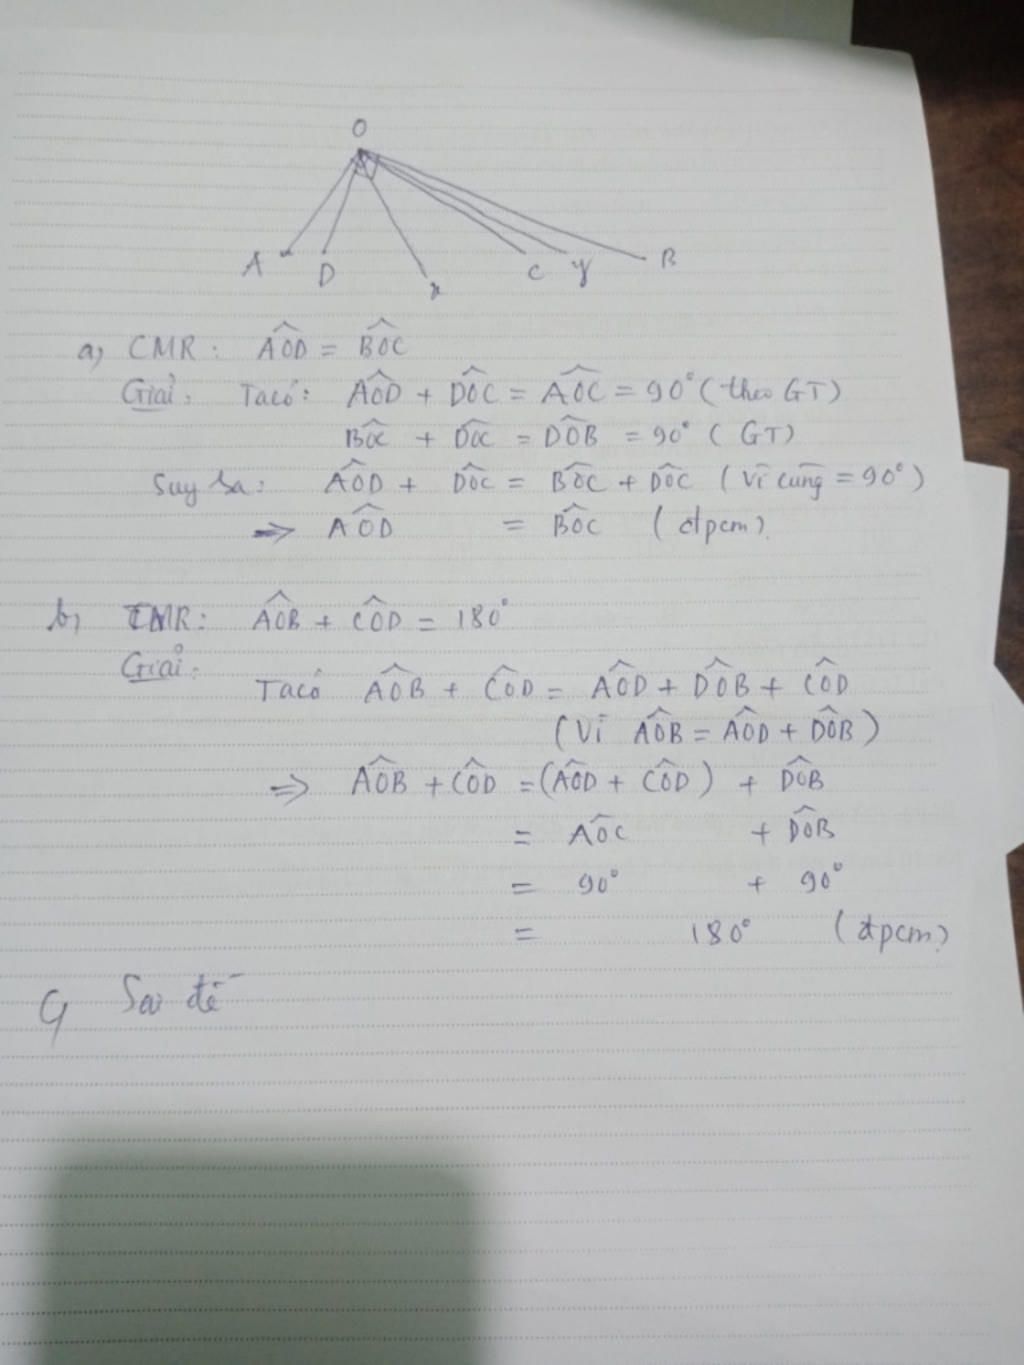 O
A D x C y B
a) CMR: AÔD = BÔC
Giải: Ta có: AÔD + DÔC = AÔC = 90° (theo GT)
BÔC + DÔC = DÔB = 90° (GT)
Suy ra: AÔD + DÔC = BÔC + DÔC (vì cùng = 90°)
=> AÔD = BÔC (đpcm).
b, CMR: AÔB + CÔD = 180°
Giải:
Ta có AÔB + CÔD = AÔD + DÔB + CÔD
(Vì AÔB = AÔD + DÔB)
=> AÔB + CÔD = (AÔD + CÔD) + DÔB
= AÔC + DÔB
= 90° + 90°
= 180° (đpcm)
Sai đề